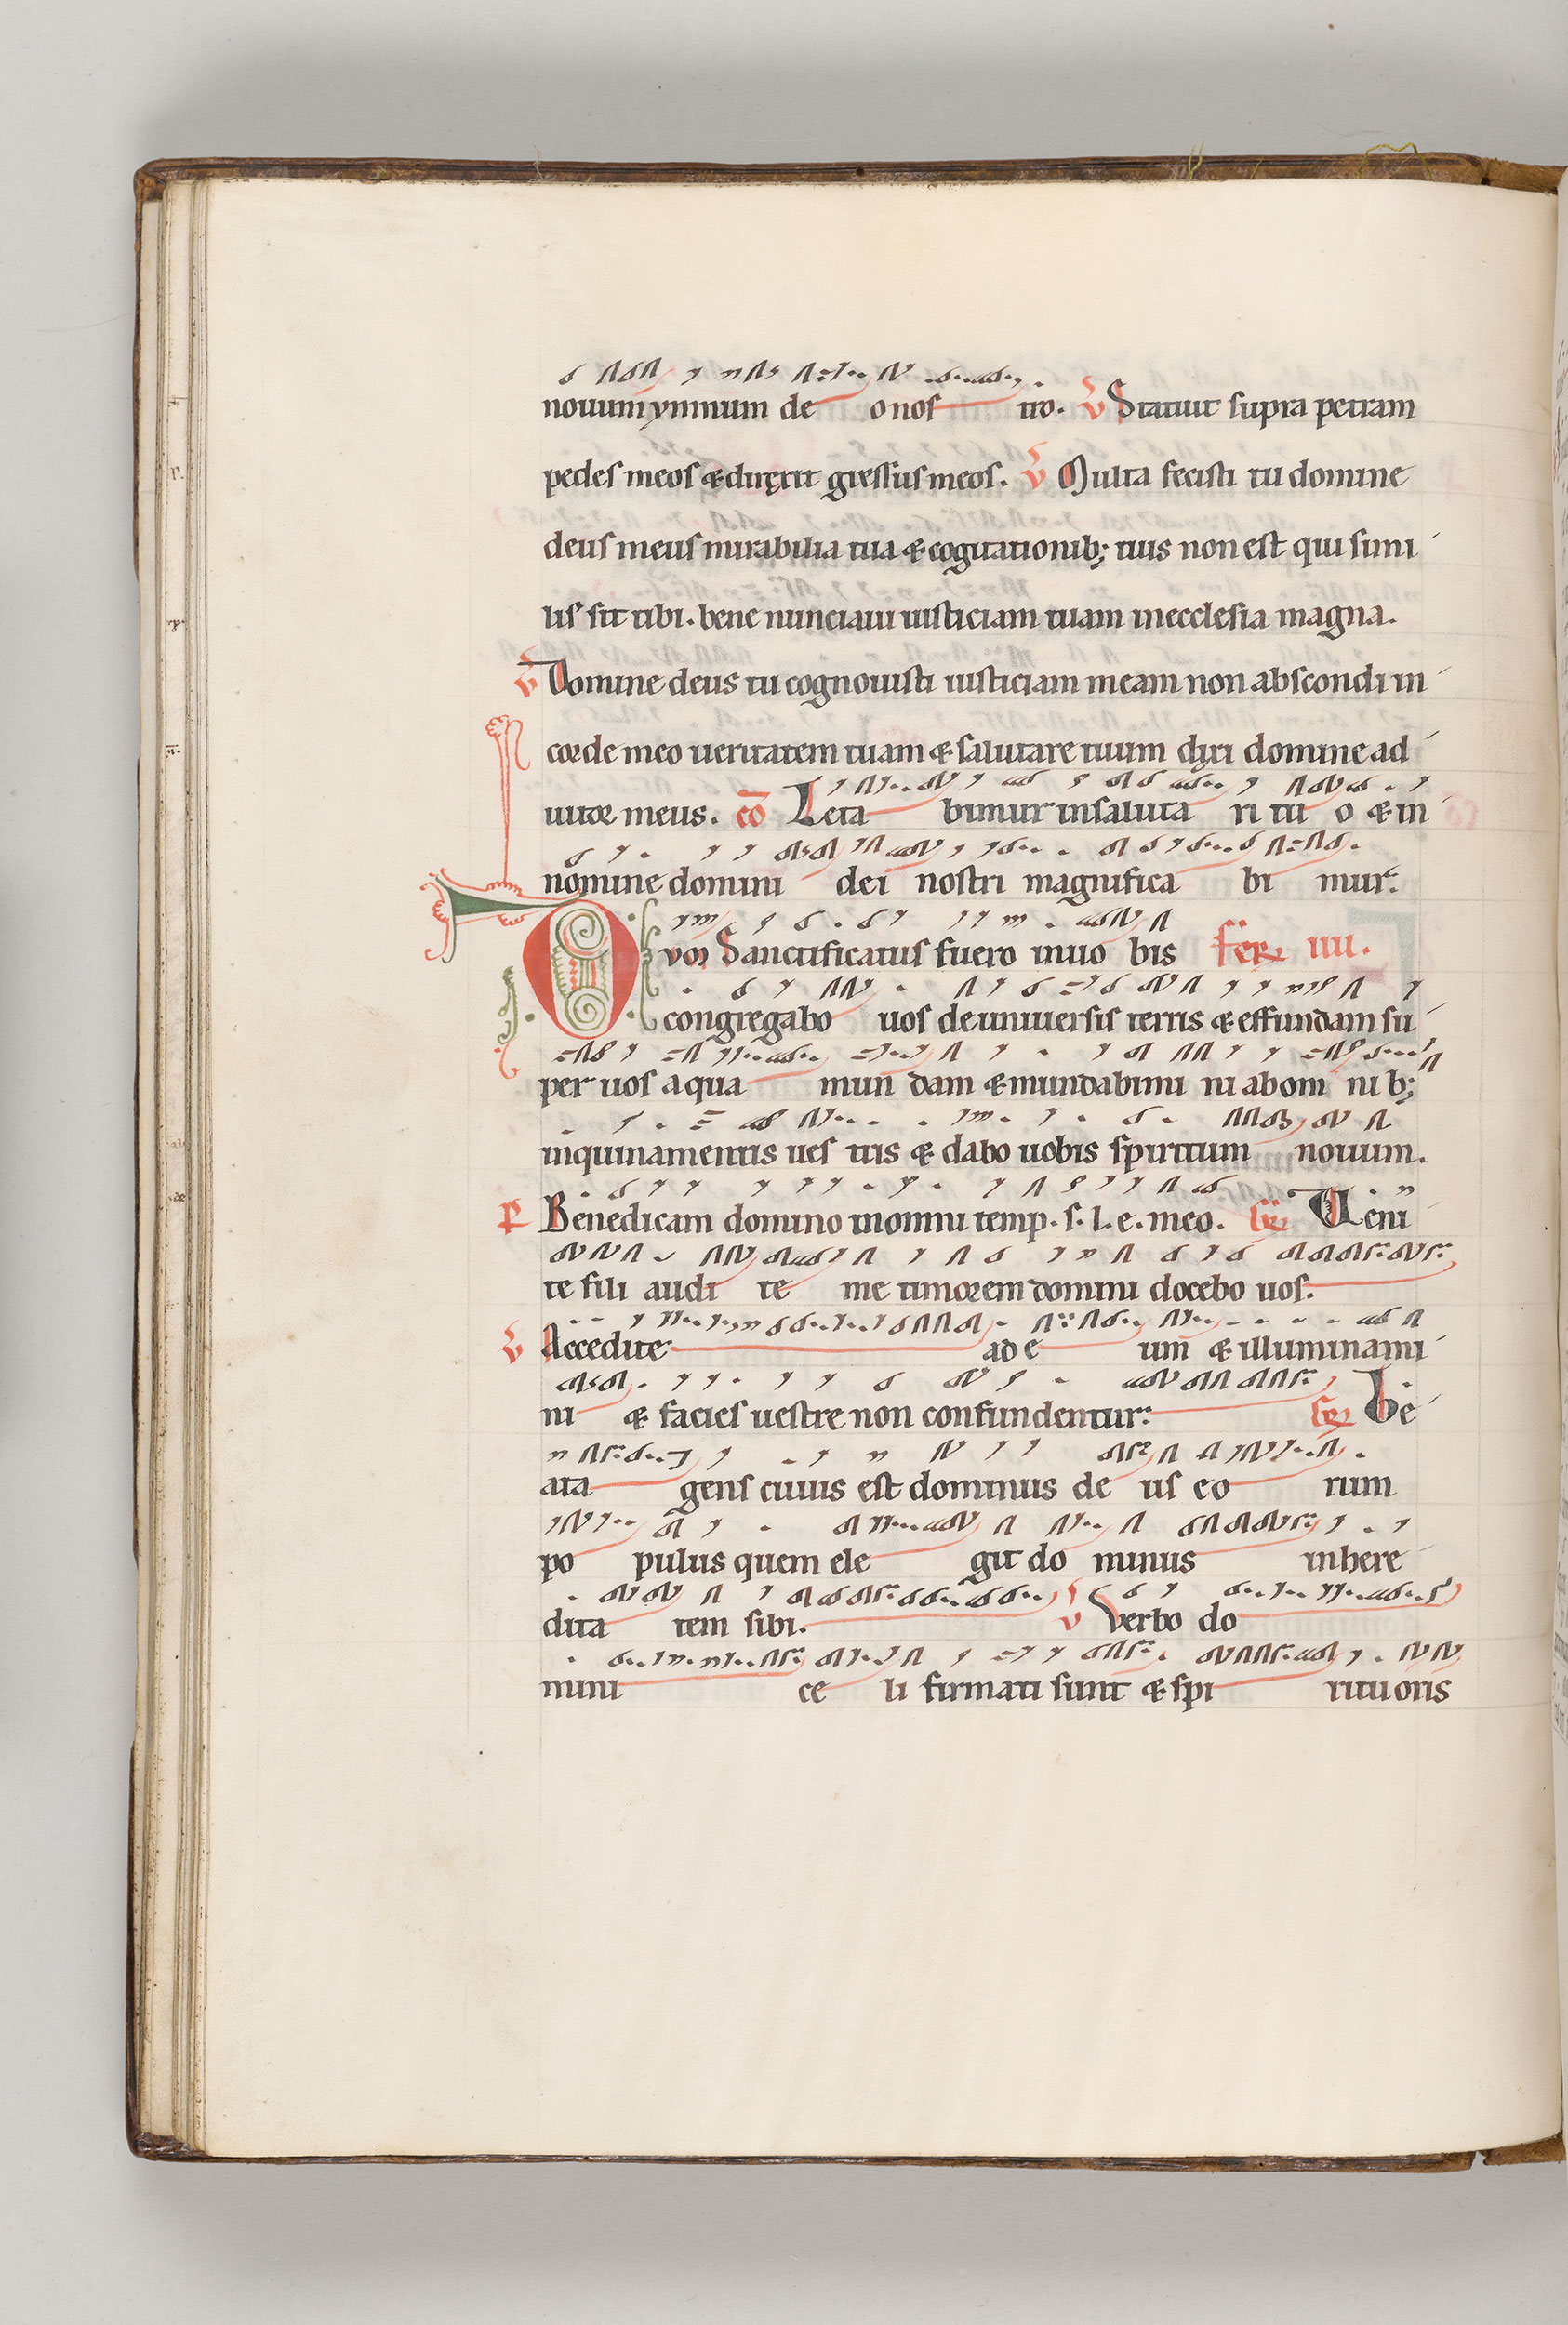 nouum ymnum de o nos tro. v̄ Statuit supra petram
pedes meos & direxit gressus meos. v̄ Multa fecisti tu domine
deus meus mirabilia tua & cogitationib; tuis non est qui simi
lis sit tibi. bene nunciaui iusticiam tuam inecclesia magna.
v̄ Domine deus tu cognouisti iusticiam meam non abscondi in
corde meo ueritatem tuam & salutare tuum dixi domine ad
iutor meus. co Leta bimur insaluta ri tu o & in
nomine domini dei nostri magnifica bi mur.
DVM Sanctificatus fuero inuo bis fer iiii.
congregabo uos deuniuersis terris & effundam su
per uos aqua mun dam & mundabimi ni abom ni b;
inquinamentis ues tris & dabo uobis spiritum nouum.
P Benedicam domino inomni temp. s. l. e. meo. Gr Ueni
te filii audi te me timorem domini docebo uos.
v̄ Accedite ad e um & illuminami
ni & facies uestre non confundentur. Gr be
ata gens cuius est dominus de us eo rum
po pulus quem ele git do minus inhere
dita tem sibi. v̄ verbo do
mini ce li firmati sunt & spi ritu oris